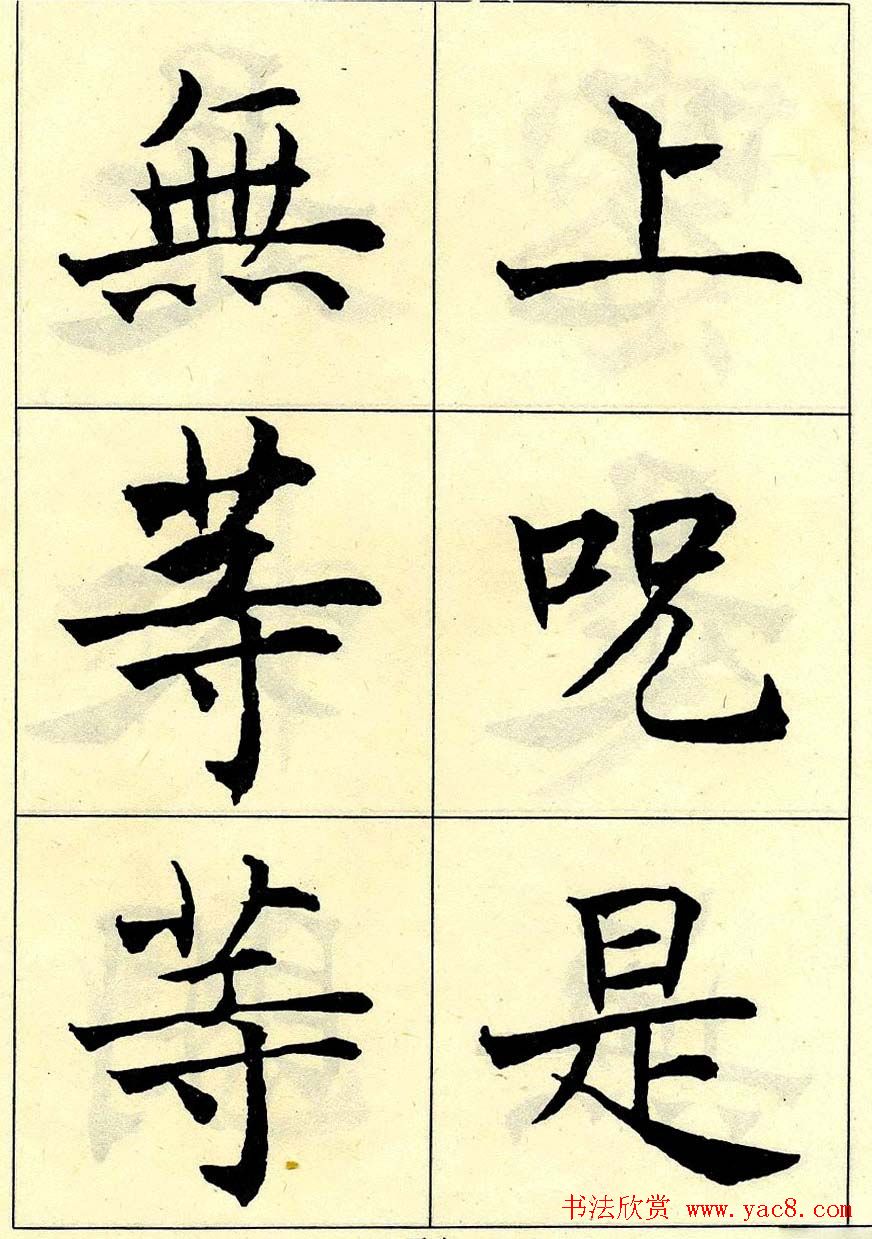 上咒是
無等等
书法欣赏 www.yac8.com